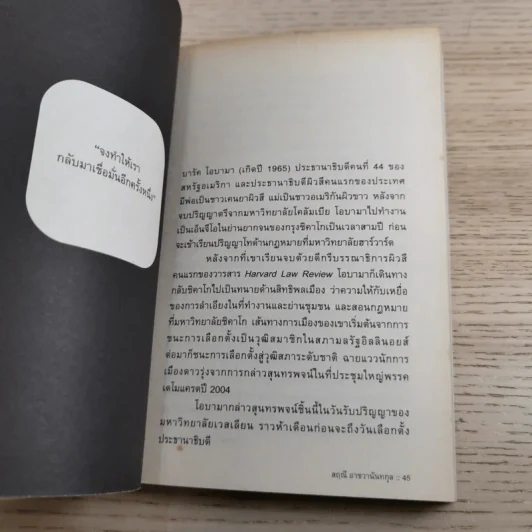 “จงทำให้เรา
กลับมาเชื่อมั่นอีกครั้งหนึ่ง”
บารัค โอบามา (เกิดปี 1965) ประธานาธิบดีคนที่ 44 ของ
สหรัฐอเมริกา และประธานาธิบดีผิวสีคนแรกของประเทศ
มีพ่อเป็นชาวเคนยาผิวสี แม่เป็นชาวอเมริกันผิวขาว หลังจาก
จบปริญญาตรีจากมหาวิทยาลัยโคลัมเบีย โอบามาไปทำงาน
เป็นเอ็นจีโอในย่านยากจนของกรุงชิคาโกเป็นเวลาสามปี ก่อน
จะเข้าเรียนปริญญาโทด้านกฎหมายที่มหาวิทยาลัยฮาร์วาร์ด
หลังจากที่เขาเรียนจบด้วยดีกรีบรรณาธิการผิวสี
คนแรกของวารสาร Harvard Law Review โอบามาก็เดินทาง
กลับชิคาโกไปเป็นทนายด้านสิทธิพลเมือง ว่าความให้กับเหยื่อ
ของการลำเอียงในที่ทำงานและย่านชุมชน และสอนกฎหมาย
ที่มหาวิทยาลัยชิคาโก เส้นทางการเมืองของเขาเริ่มต้นจากการ
ชนะการเลือกตั้งเป็นวุฒิสมาชิกในสภามลรัฐอิลลินอยส์
ต่อมาก็ชนะการเลือกตั้งสู่วุฒิสภาระดับชาติ ฉายแววนักการ
เมืองดาวรุ่งจากการกล่าวสุนทรพจน์ในที่ประชุมใหญ่พรรค
เดโมแครตปี 2004
โอบามากล่าวสุนทรพจน์ชิ้นนี้ในวันรับปริญญาของ
มหาวิทยาลัยเวสเลียน ราวห้าเดือนก่อนจะถึงวันเลือกตั้ง
ประธานาธิบดี
สฤณี อาชวานันทกุล :: 45